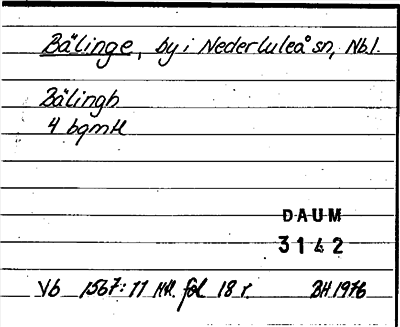 Bälinge, by i Nederluleå sn, Nb.l.
Bälingh
4 bgmtl
DAUM
3142
Vb 1567:11 Hkl. fol 18 r. BH 1976